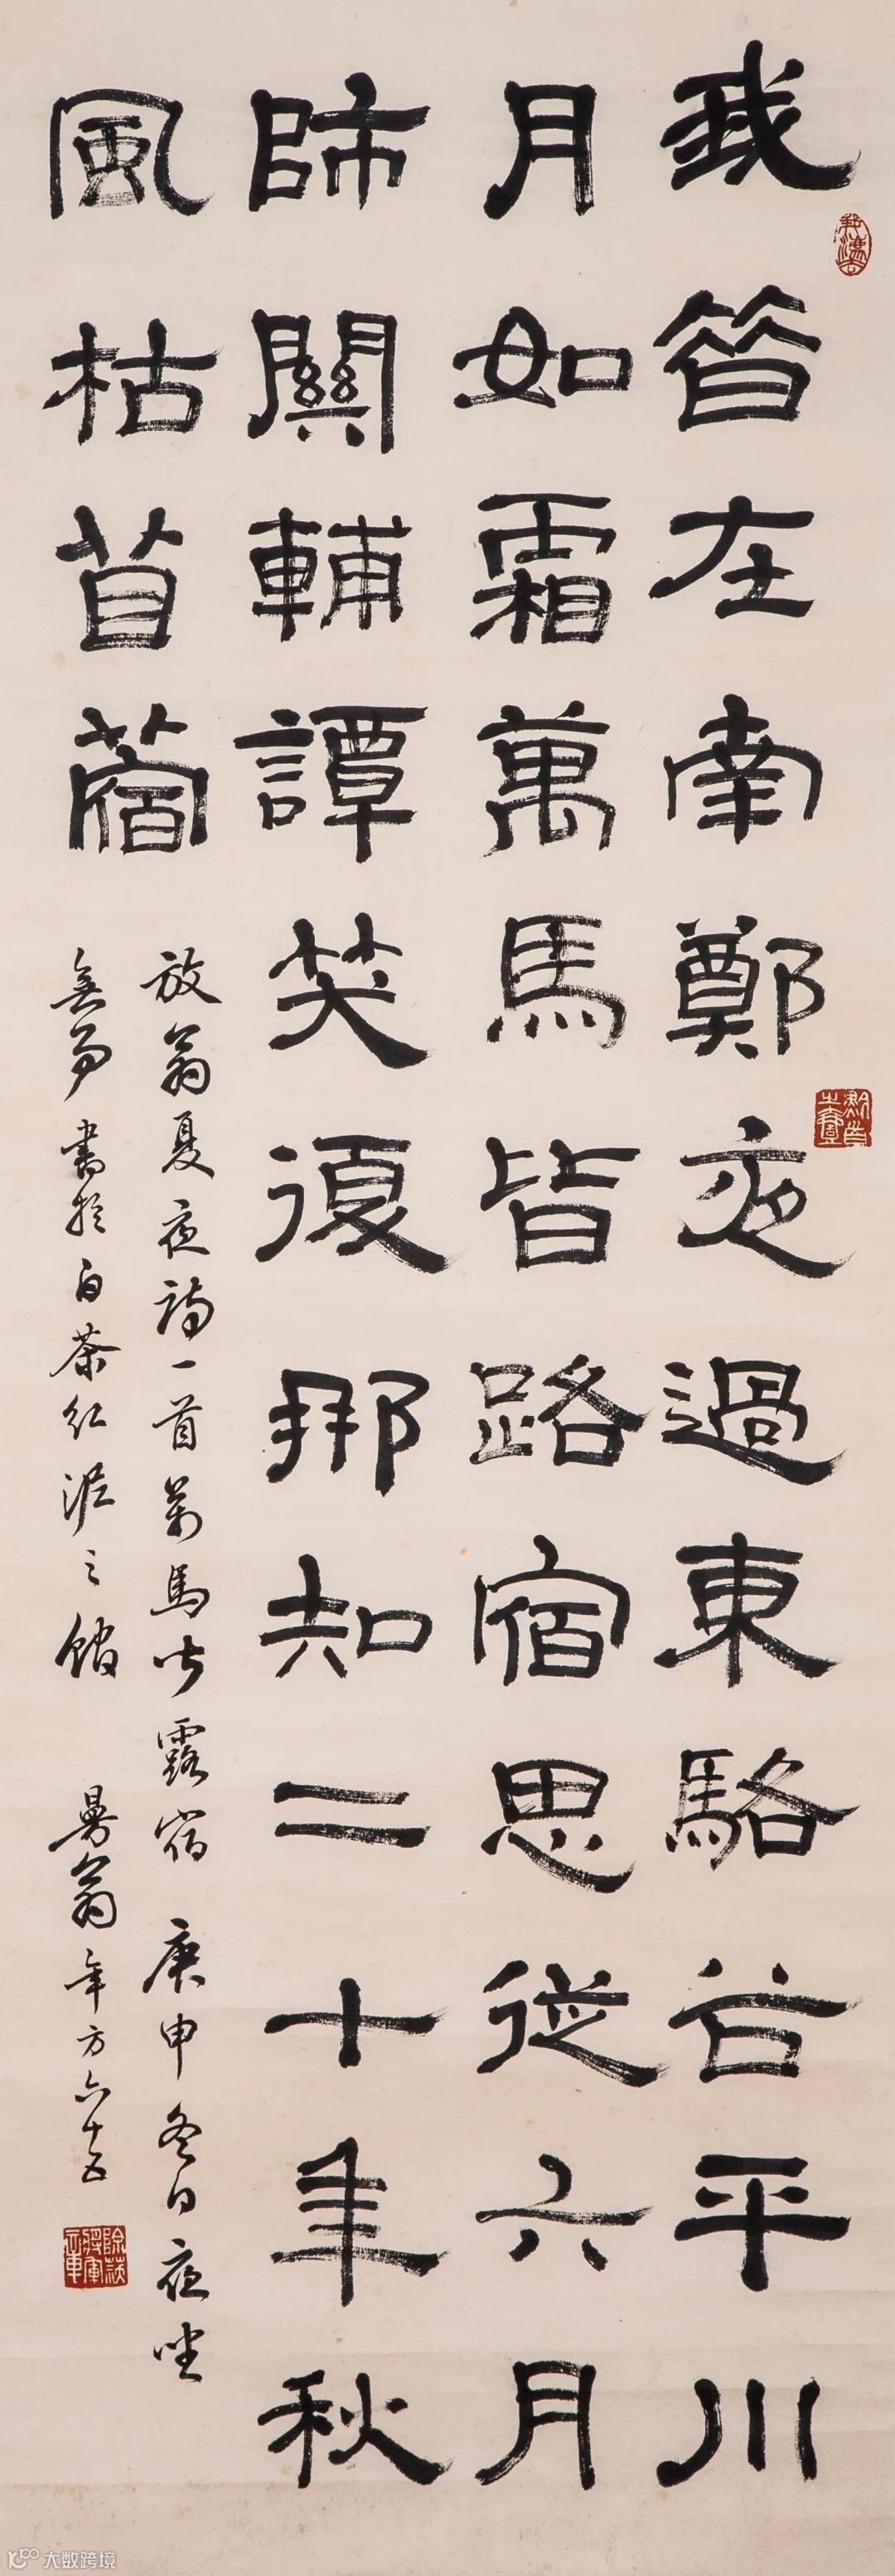 我昔在南鄭夜過東駱谷平川
月如霜萬馬皆路宿思從六月
師關輔譚笑復那知二十年秋
風枯苜蓿
放翁夏夜詩一首萬馬皆露宿 庚申冬日夜坐
無事書於白茶紅泥之館 曼翁年方六十五
大数跨境